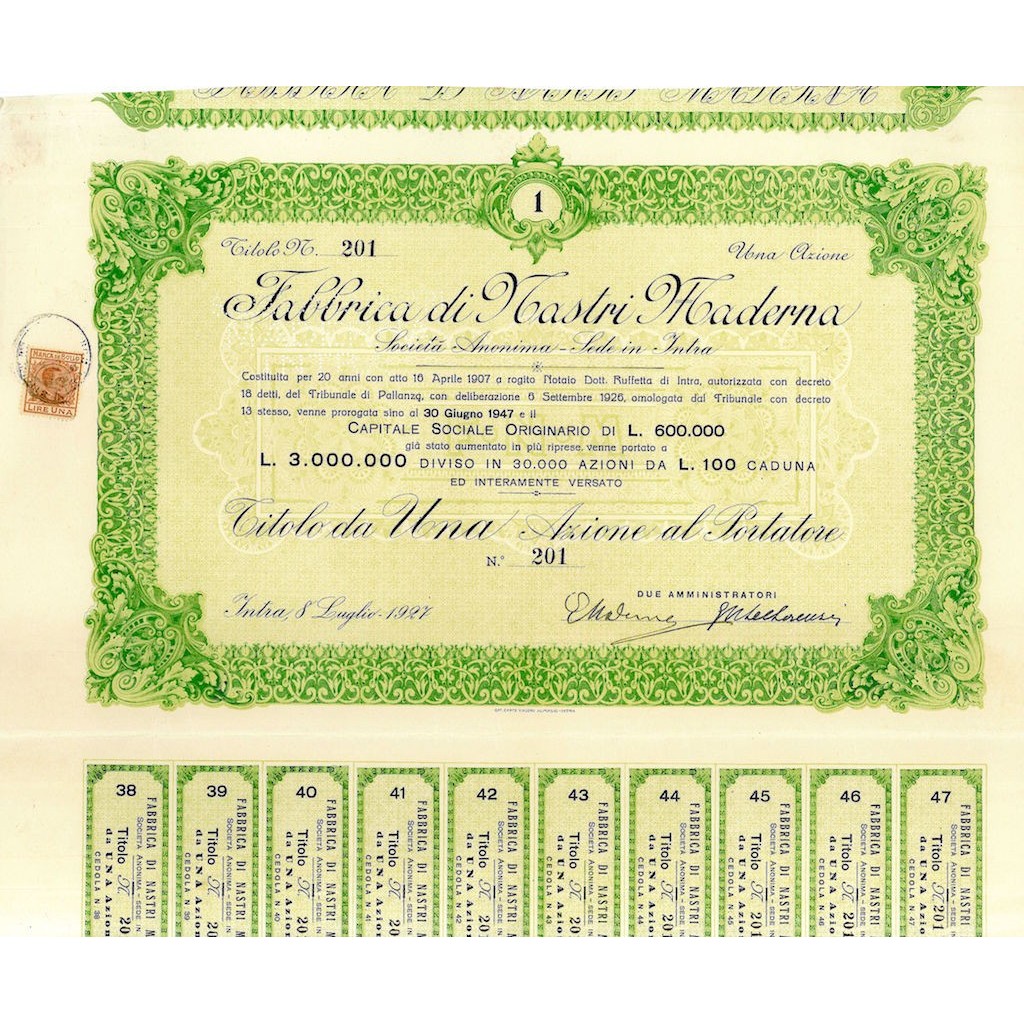 1
Titolo N. 201
Una Azione
Fabbrica di Nastri Maderna
Società Anonima - Sede in Intra
Costituita per 20 anni con atto 16 Aprile 1907 a rogito Notaio Dott. Ruffetta di Intra, autorizzata con decreto
18 detti, del Tribunale di Pallanza, con deliberazione 6 Settembre 1926, omologata dal Tribunale con decreto
13 stesso, venne prorogata sino al 30 Giugno 1947 e il
CAPITALE SOCIALE ORIGINARIO DI L. 600.000
già stato aumentato in più riprese venne portato a
L. 3.000.000 DIVISO IN 30.000 AZIONI DA L. 100 CADUNA
ED INTERAMENTE VERSATO
Titolo da Una Azione al Portatore
N.° 201
Intra, 8 Luglio 1927
DUE AMMINISTRATORI
MARCA DA BOLLO
LIRE UNA
38
FABBRICA DI NASTRI
SOCIETÀ ANONIMA - SEDE
Titolo N. 20
da UNA Azio
CEDOLA N. 38
39
FABBRICA DI NASTRI
SOCIETÀ ANONIMA - SEDE IN
Titolo N. 20
da UNA Azio
CEDOLA N. 39
40
FABBRICA DI NASTRI
SOCIETÀ ANONIMA - SEDE IN
Titolo N. 20
da UNA Azio
CEDOLA N. 40
41
FABBRICA DI NASTRI
SOCIETÀ ANONIMA - SEDE IN
Titolo N. 20
da UNA Azio
CEDOLA N. 41
42
FABBRICA DI NASTRI
SOCIETÀ ANONIMA - SEDE IN
Titolo N. 20
da UNA Azio
CEDOLA N. 42
43
FABBRICA DI NASTRI
SOCIETÀ ANONIMA - SEDE IN
Titolo N. 201
da UNA Azio
CEDOLA N. 43
44
FABBRICA DI NASTRI
SOCIETÀ ANONIMA - SEDE IN
Titolo N. 201
da UNA Azio
CEDOLA N. 44
45
FABBRICA DI NASTRI
SOCIETÀ ANONIMA - SEDE IN
Titolo N. 201
da UNA Azio
CEDOLA N. 45
46
FABBRICA DI NASTRI
SOCIETÀ ANONIMA - SEDE IN
Titolo N. 201
da UNA Azio
CEDOLA N. 46
47
FABBRICA DI NASTRI
SOCIETÀ ANONIMA - SEDE IN
Titolo N. 201
da UNA Azio
CEDOLA N. 47